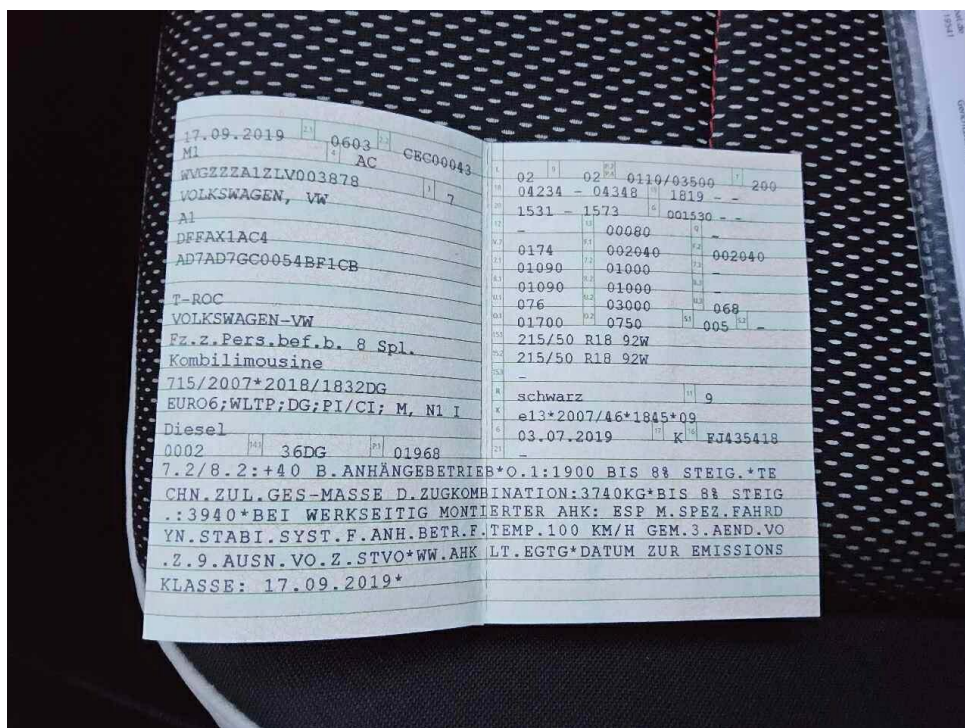 17.09.2019 2.1 0603 2.2 CEC00043
M1 4 AC
WVGZZZA1ZLV003878 3 7
VOLKSWAGEN, VW
A1
DFFAX1AC4
AD7AD7GC0054BF1CB
T-ROC
VOLKSWAGEN-VW
Fz.z.Pers.bef.b. 8 Spl.
Kombilimousine
715/2007*2018/1832DG
EURO6;WLTP;DG;PI/CI; M, N1 I
Diesel
0002 14.1 36DG P.1 01968
L 02 9 02 P.2 P.4 0110/03500 T 200
18 04234 - 04348 19 1819 - -
20 1531 - 1573 G 001530 - -
12 - 13 00080 Q -
V.7 0174 F.1 002040 F.2 002040
7.1 01090 7.2 01000 7.3 -
8.1 01090 8.2 01000 8.3 -
U.1 076 U.2 03000 U.3 068
O.1 01700 O.2 0750 S.1 005 S.2 -
15.1 215/50 R18 92W
15.2 215/50 R18 92W
15.3 -
R schwarz 11 9
K e13*2007/46*1845*09
6 03.07.2019 17 K 16 FJ435418
21 -
7.2/8.2:+40 B.ANHÄNGEBETRIEB*O.1:1900 BIS 8% STEIG.*TE
CHN.ZUL.GES-MASSE D.ZUGKOMBINATION:3740KG*BIS 8% STEIG
.:3940*BEI WERKSEITIG MONTIERTER AHK: ESP M.SPEZ.FAHRD
YN.STABI.SYST.F.ANH.BETR.F.TEMP.100 KM/H GEM.3.AEND.VO
.Z.9.AUSN.VO.Z.STVO*WW.AHK LT.EGTG*DATUM ZUR EMISSIONS
KLASSE: 17.09.2019*